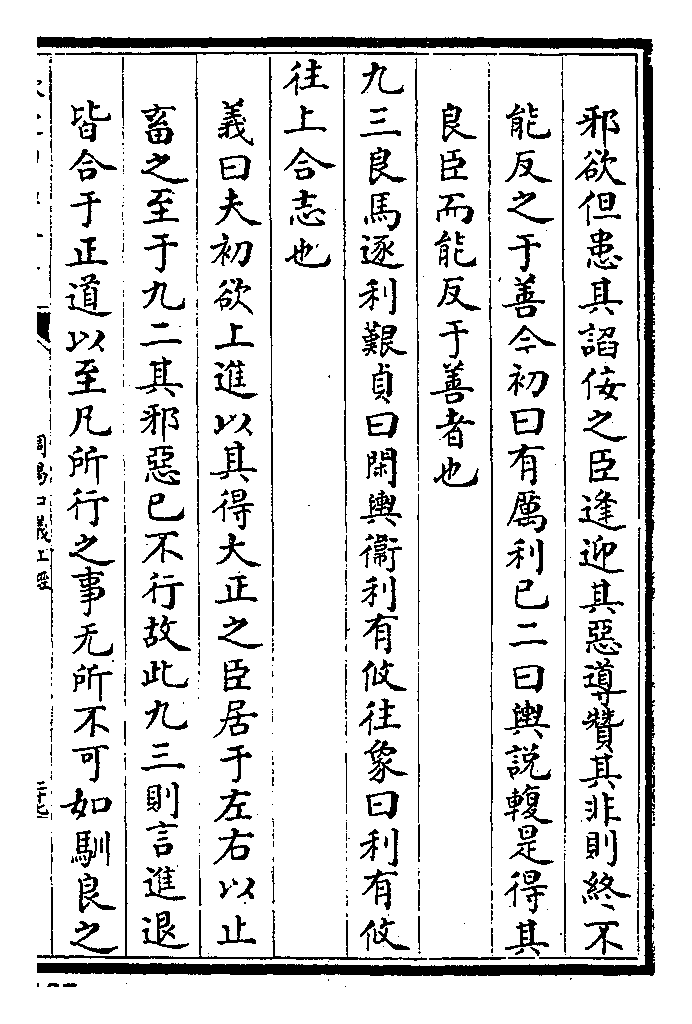 邪欲但患其謟佞之臣逢迎其惡導贊其非則終不
能反之于善今初曰有厲利已二曰輿説輹是得其
良臣而能反于善者也
九三良馬逐利艱貞曰閑輿衞利有攸往象曰利有攸
往上合志也
義曰夫初欲上進以其得大正之臣居于左右以止
畜之至于九二其邪惡已不行故此九三則言進退
皆合于正道以至凡所行之事无所不可如馴良之
周易口義上經